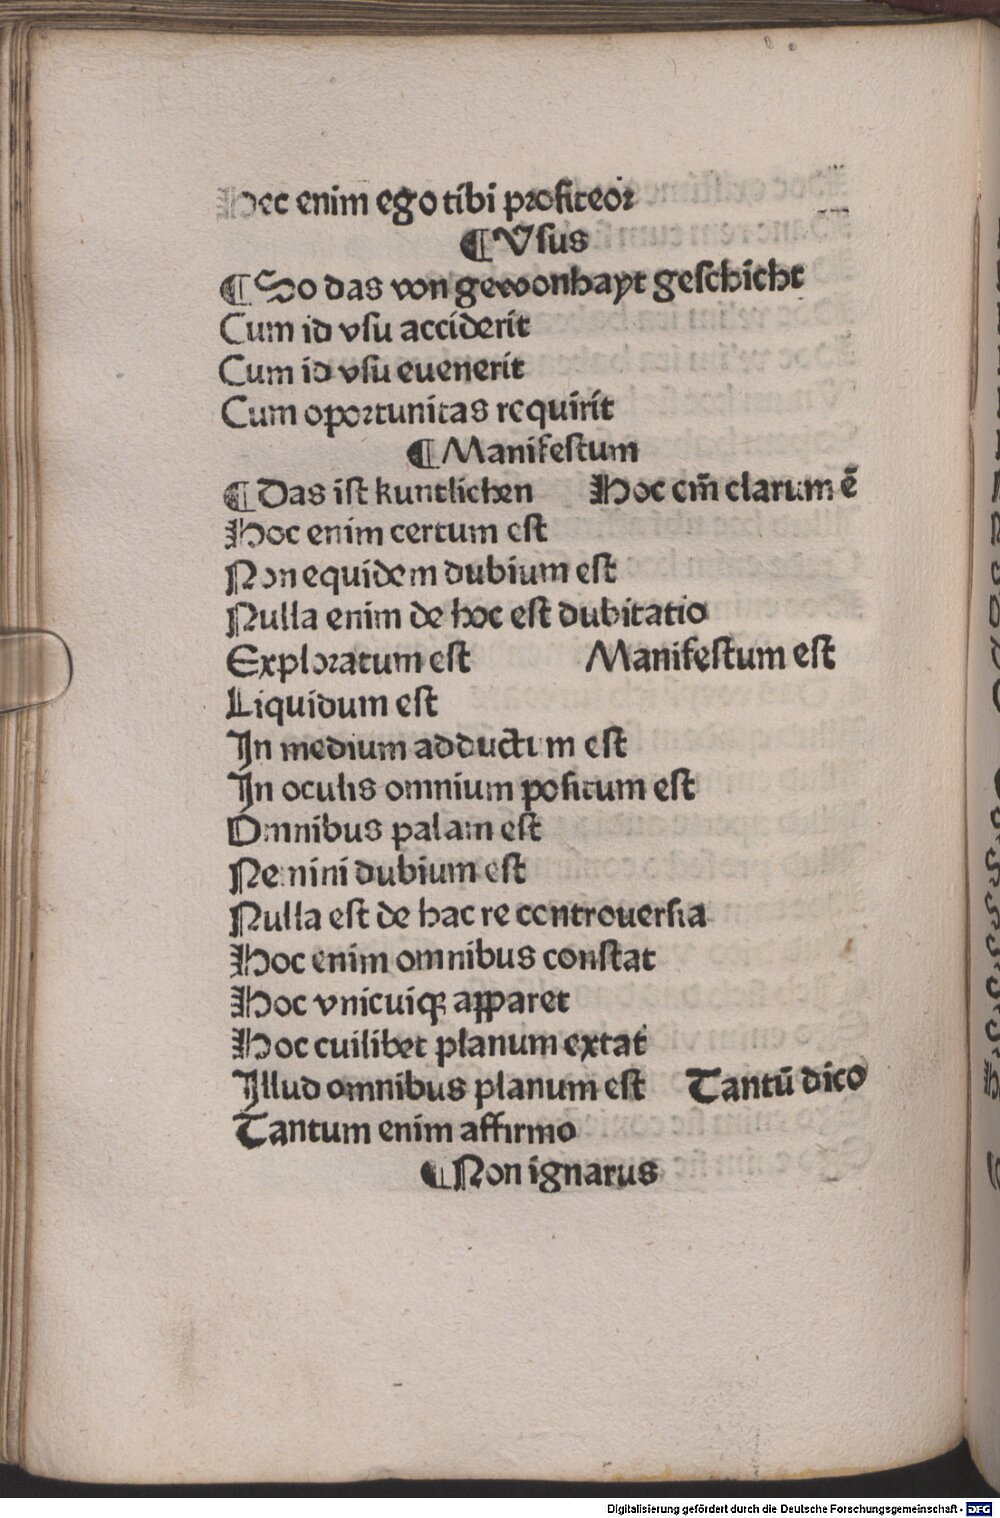 Hec enim ego tibi profiteor
¶ Vsus
¶ So das von gewonhayt geschicht
Cum id vsu acciderit
Cum id vsu euenerit
Cum oportunitas requirit
¶ Manifestum
¶ Das ist kuntlichen Hoc em̃ clarum ẽ
Hoc enim certum est
Non equidem dubium est
Nulla enim de hoc est dubitatio
Exploratum est Manifestum est
Liquidum est
In medium adductum est
In oculis omnium positum est
Omnibus palam est
Nemini dubium est
Nulla est de hac re controuersia
Hoc enim omnibus constat
Hoc vnicuiqꝫ apparet
Hoc cuilibet planum extat
Illud omnibus planum est Tantū dico
Tantum enim affirmo
¶ Non ignarus
Digitalisierung gefördert durch die Deutsche Forschungsgemeinschaft - DFG